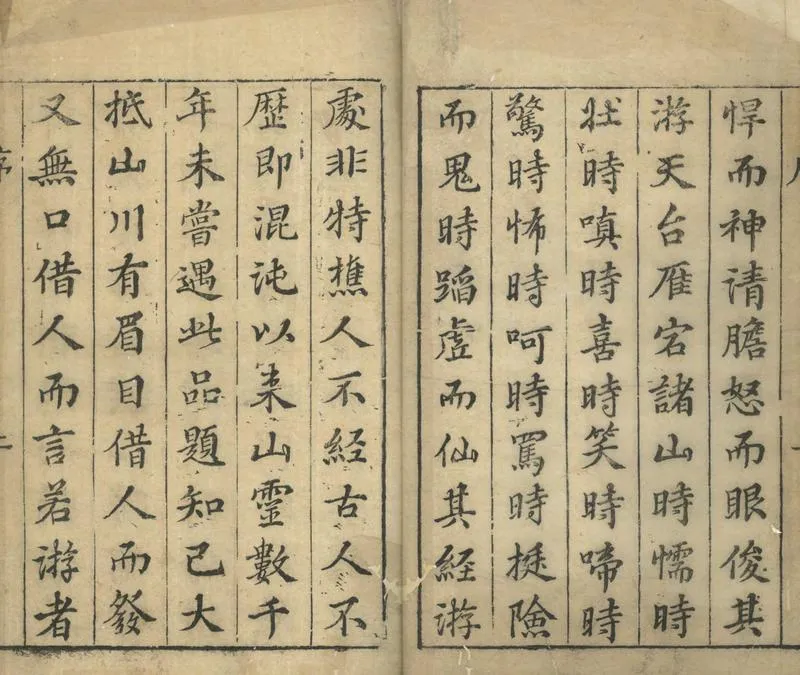 悍而神清膽怒而眼俊其
游天台雁宕諸山時懦時
壯時嗔時喜時笑時啼時
驚時怖時呵時罵時挺險
而鬼時蹈虛而仙其經游
處非特樵人不經古人不
歷即混沌以來山靈數千
年未嘗遇此品題知己大
抵山川有眉目借人而發
又無口借人而言若游者